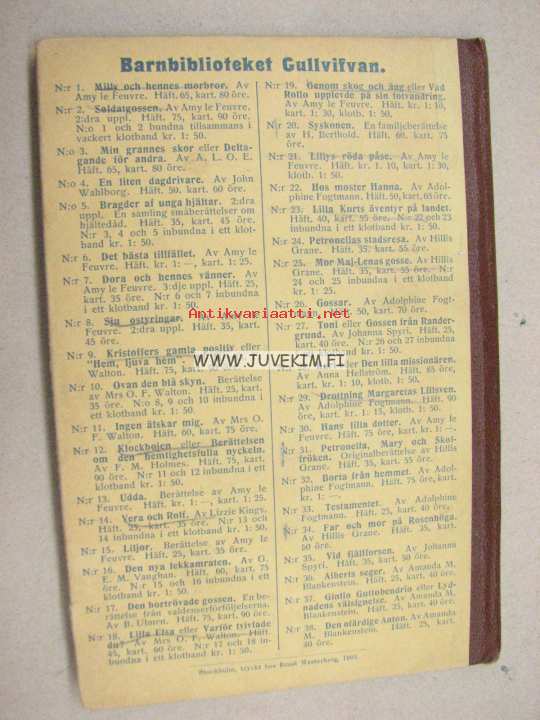 Barnbiblioteket Gullvifvan.
N:r 1. Milly och hennes morbror. Av
Amy le Feuvre. Häft. 65, kart. 80 öre.
N:r 2. Soldatgossen. Av Amy le Feuvre.
2:dra uppl. Häft. 75, kart. 90 öre.
N:o 1 och 2 bundna tillsammans i
vackert klotband kr. 1: 50.
N:o 3. Min grannes skor eller Delta-
gande för andra. Av A. L. O. E.
Häft. 65, kart. 80 öre.
N:o 4. En liten dagdrivare. Av John
Wahlborg. Häft. 50, kart. 60 öre.
N:o 5. Bragder af unga hjältar. 2:dra
uppl. En samling småberättelser om
hjältedåd. Häft. 35, kart. 45 öre.
N:r 3, 4 och 5 inbundna i ett
klotband kr. 1: 50.
N:r 6. Det bästa tillfället. Av Amy le
Feuvre. Häft. kr. 1: —, kart. 1: 25.
N:r 7. Dora och hennes vänner. Av
Amy le Feuvre. 3:dje uppl. Häft. 25,
kart. 35 öre. N:r 6 och 7 inbundna
i ett klotband kr. 1: 50.
N:r 8. Sin ostyringar.
Feuvre. 2:dra uppl. Häft. 35, kart.
45 öre.
N:r 9. Kristoffers gamla positiv eller
"Hem, ljuva hem"
Walton. Häft. 75, kart.
N:r 10. Ovan den blå skyn. Berättelse
av Mrs O. F. Walton. Häft. 25, kart.
35 öre. N:o 8, 9 och 10 inbundna i
ett klotband kr. 1: 50.
N:r 11. Ingen älskar mig. Av Mrs O.
F. Walton. Häft. 60, kart. 75 öre.
N:r 12. Klockbojen eller Berättelsen
om den hemlighetsfulla nyckeln.
Av F. M. Holmes. Häft. 75, kart.
90 öre. N:r 11 och 12 inbundna i ett
klotband kr. 1: 50.
N:r 13. Udda. Berättelse av Amy le
Feuvre. Häft. kr. 1: —, kart. 1: 25.
N:r 14. Vera och Rolf. Av Lizzie Kings.
Häft. 25, kart. 35 öre. N:r 13 och
14 inbundna i ett klotband kr. 1: 50.
N:r 15. Liljor. Berättelse av Amy le
Feuvre. Häft. 25, kart. 35 öre.
N:r 16. Den nya lekkamraten. Av O.
E. M. Vaughan. Häft. 60, kart. 75
öre. N:r 15 och 16 inbundna i ett
klotband kr. 1: 50.
N:r 17. Den bortrövade gossen. En be-
rättelse från valdenserförföljelserna.
Av B. Ulmen. Häft. 75, kart. 90 öre.
N:r 18. Lilla Elsa eller Varför tvivlade
du? Av Mrs O. F. Walton. Häft.
45, kart. 60 öre. N:r 17 och 18 in-
bundna i ett klotband kr. 1: 50.
N:r 19. Genom skog och äng eller Vad
Rollo upplevde på sin fotvandring.
Av Amy le Feuvre. Häft. kr. 1: 10,
kart. 1: 30, klotb. 1: 50.
N:r 20. Syskonen. En familjeberättelse
av H. Berthold. Häft. 60, kart. 75
öre.
N:r 21. Lillys röda påse. Av Amy le
Feuvre. Häft. kr. 1. 10, kart. 1: 30,
klotb. 1: 50.
N:r 22. Hos moster Hanna. Av Adol-
phine Fogtmann. Häft. 50, kart. 60 öre.
N:r 23. Lilla Kurts äventyr på landet.
Häft. 40, kart. 55 öre. N:r 22 och 23
inbundna i ett klotband kr. 1: 50.
N:r 24. Petronellas stadsresa. Av Hillis
Grane. Häft. 35, kart. 55 öre.
N:r 25. Mor Maj-Lenas gosse. Av Hillis
Grane. Häft. 35, kart. 55 öre. N:r
24 och 25 inbundna i ett klotband
kr. 1: 25.
N:r 26. Gossar. Av Adolphine Fogt-
50, kart. 70 öre.
N:r 27. Toni eller Gossen från Rander-
grund. Av Johanna Spyri. Häft. 25,
kart. 40 öre. N:r 26 och 27 inbundna
klotband kr. 1: 50.
eller Den lilla missionären.
Av Anna Hellström. Häft. 85 öre,
kart. kr. 1: 10, klotb. 1: 50.
N:r 29. Drottning Margaretas Lillsven.
Av Adolphine Fogtmann. Häft. 90
öre, kart. kr. 1: 15, klotb. 1: 50.
N:r 30. Hans lilla dotter. Av Amy le
Feuvre. Häft. 75 öre, kart. kr. 1: —.
N:r 31. Petronella, Mary och Skol-
fröken. Originalberättelse av Hillis
Grane. Häft. 35, kart. 55 öre.
N:r 32. Borta från hemmet. Av Adol-
phine Fogtmann. Häft. 75 öre, kart.
kr. 1: —.
N:r 33. Testamentet. Av Adolphine
Fogtmann. Häft. 25, kart. 40 öre.
N:r 34. Far och mor på Rosenhöga.
Av Hillis Grane. Häft. 35, kart.
50 öre.
N:r 35. Vid fjällforsen. Av Johanna
Spyri. Häft. 35, kart. 50 öre.
N:r 36. Alberts seger. Av Amanda M.
Blankenstein. Häft. 25, kart. 40 öre.
N:r 37. Giulio Guttobendrio eller Lyd-
nadens välsignelse. Av Amanda M.
Blankenstein. Häft. 25, kart. 40 öre.
N:r 38. Den ofärdige Anton. Av Amanda
M. Blankenstein. Häft. 25, kart.
40 öre.
Stockholm, tryckt hos Ernst Westerberg,
Antikvariaatti.net
WWW.JUVEKIM.FI